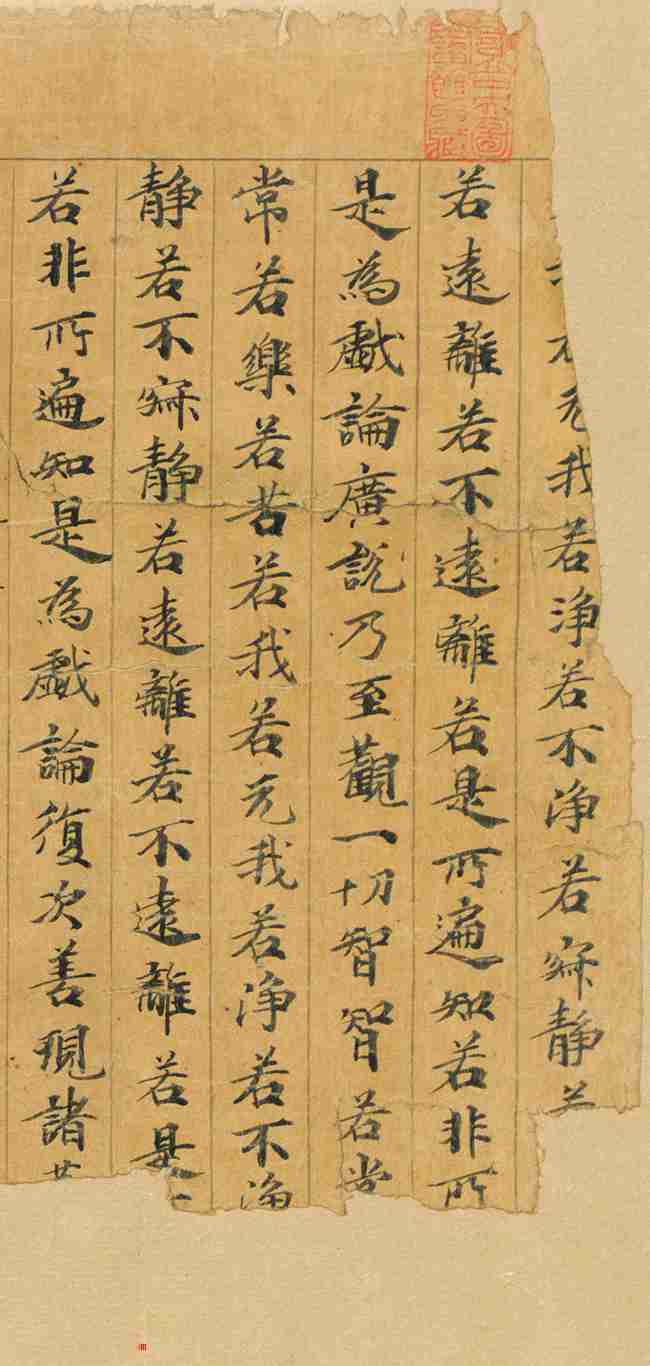 无我若淨若不淨若寂靜
若遠離若不遠離若是所遍知若非所
是為戲論廣說乃至觀一切智智若常
常若樂若苦若我若无我若淨若不淨
靜若不寂靜若遠離若不遠離若是
若非所遍知是為戲論復次善現諸